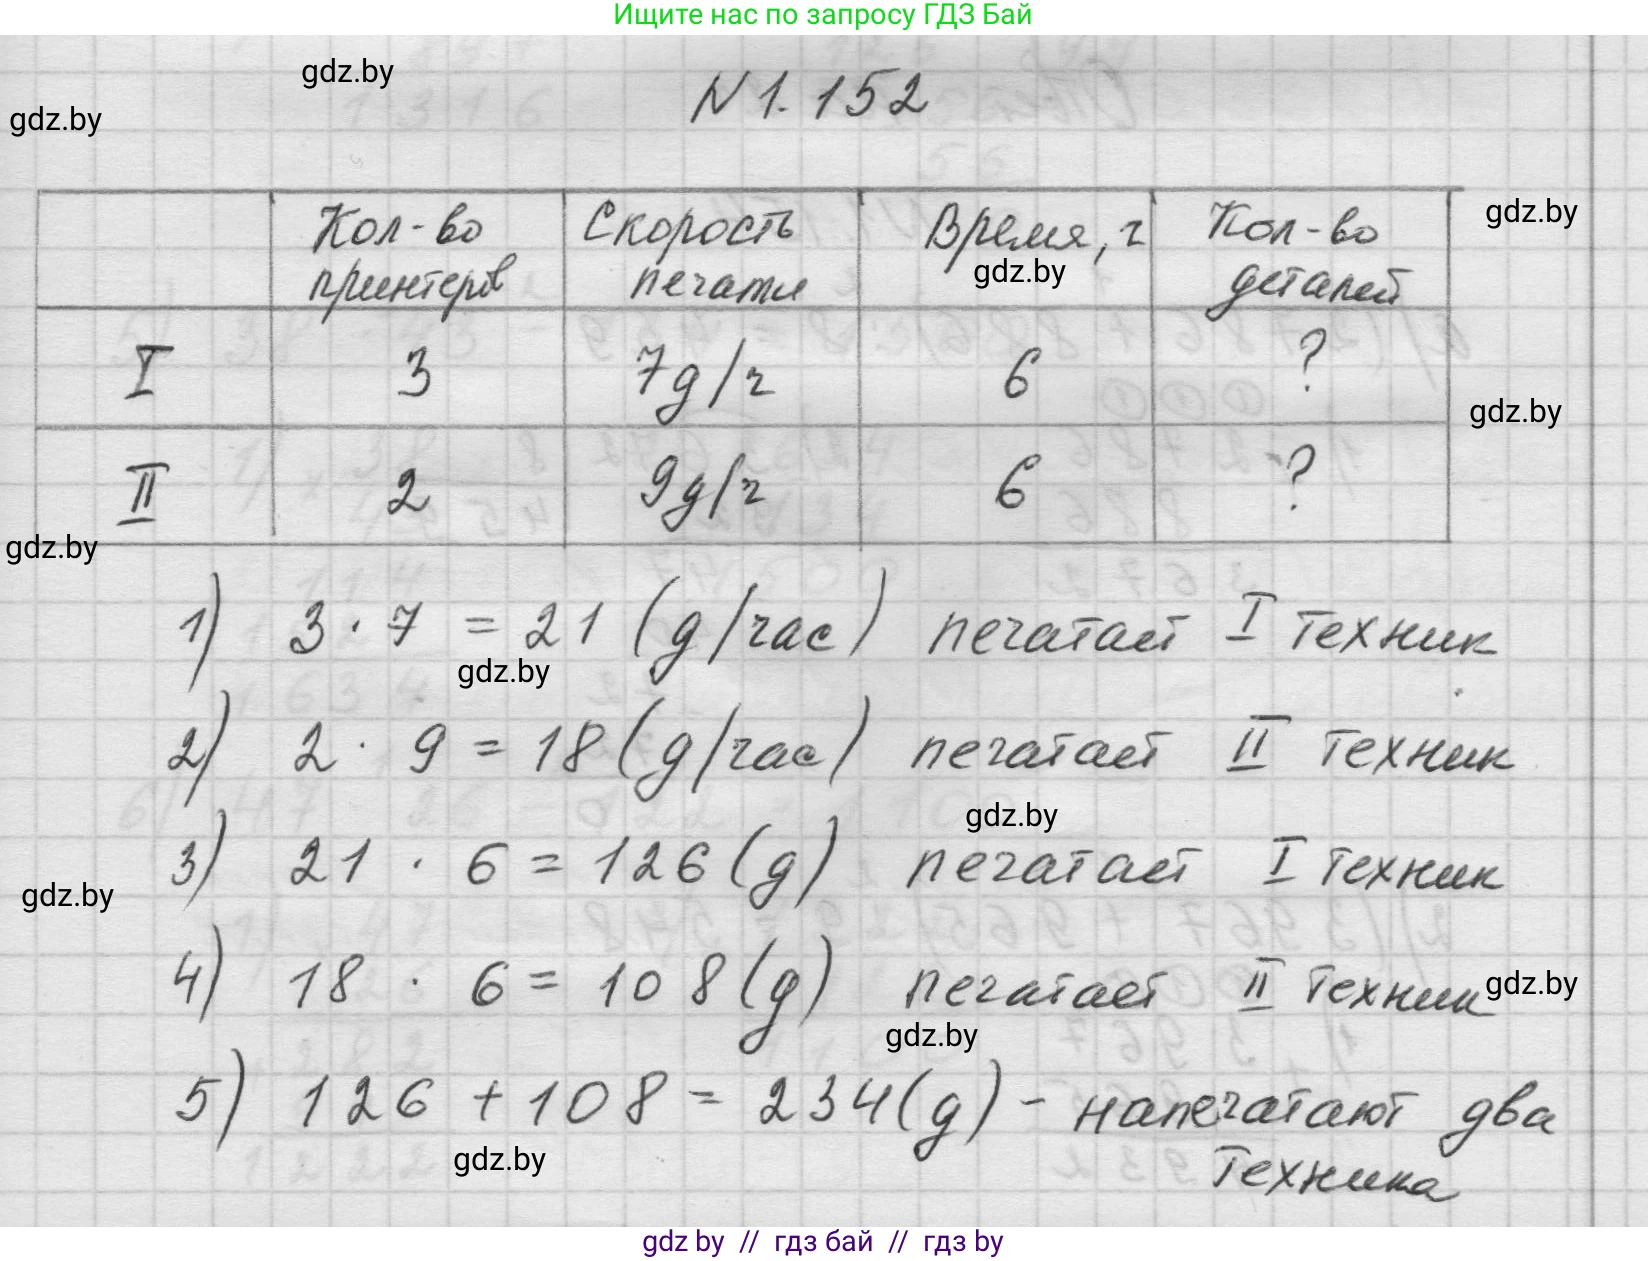 Ищите нас по запросу ГДЗ Бай
gdz.by
N 1.152
gdz.by
Кол-во принтеров Скорость печати Время, г Кол-во деталей
gdz.by
gdz.by
I 3 7д/ч 6 ?
gdz.by
II 2 9д/ч 6 ?
gdz.by
1) 3 · 7 = 21 (д/час) печатает I техник
gdz.by
2) 2 · 9 = 18 (д/час) печатает II техник
gdz.by
3) 21 · 6 = 126 (д) печатает I техник
gdz.by
4) 18 · 6 = 108 (д) печатает II техник
gdz.by
gdz.by
5) 126 + 108 = 234 (д) - напечатают два
техника
gdz.by
gdz by // гдз бай // гдз by